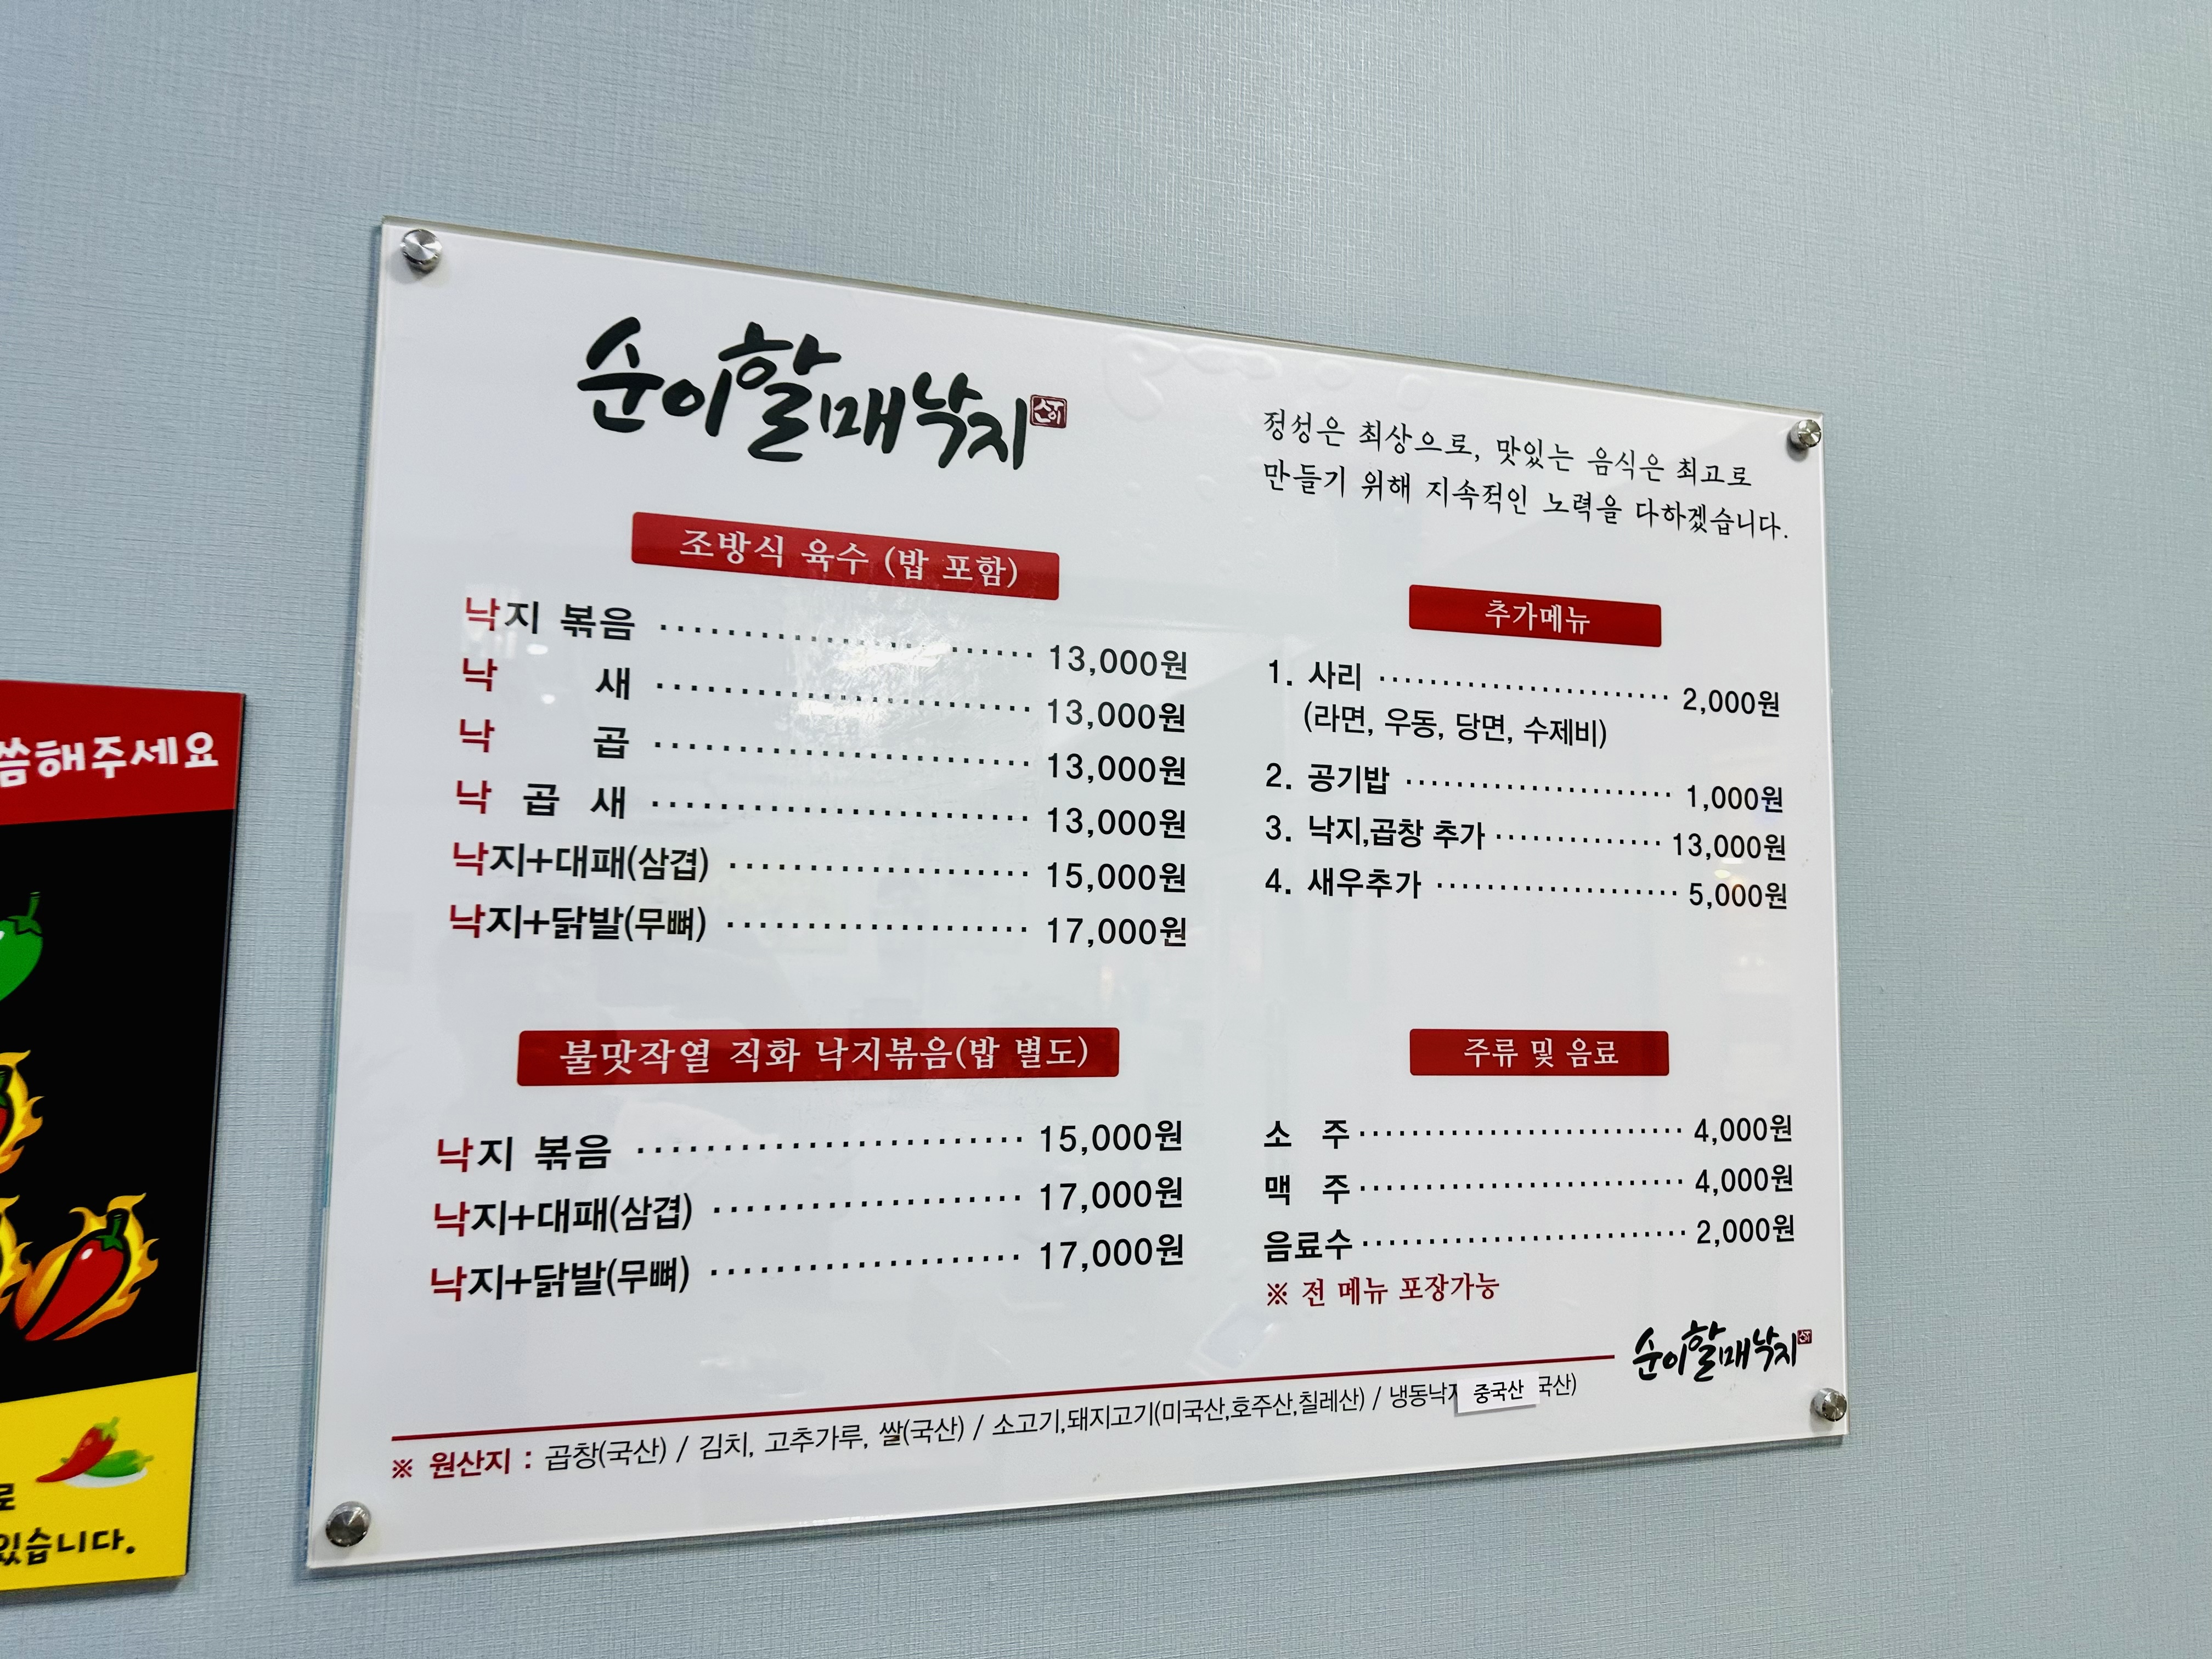 순이할매낙지
정성은 최상으로, 맛있는 음식은 최고로
만들기 위해 지속적인 노력을 다하겠습니다.
조방식 육수 (밥 포함)
낙지 볶음 ‥‥‥‥‥‥ 13,000원
낙 새 ‥‥‥‥‥‥ 13,000원
낙 곱 ‥‥‥‥‥‥ 13,000원
낙 곱 새 ‥‥‥‥‥‥ 13,000원
낙지+대패(삼겹) ‥‥‥‥‥‥ 15,000원
낙지+닭발(무뼈) ‥‥‥‥‥‥ 17,000원
추가메뉴
1. 사리 ‥‥‥‥‥‥ 2,000원
(라면, 우동, 당면, 수제비)
2. 공기밥 ‥‥‥‥‥‥ 1,000원
3. 낙지,곱창 추가 ‥‥‥‥‥‥ 13,000원
4. 새우추가 ‥‥‥‥‥‥ 5,000원
불맛작열 직화 낙지볶음(밥 별도)
낙지 볶음 ‥‥‥‥‥‥ 15,000원
낙지+대패(삼겹) ‥‥‥‥‥‥ 17,000원
낙지+닭발(무뼈) ‥‥‥‥‥‥ 17,000원
주류 및 음료
소 주 ‥‥‥‥‥‥ 4,000원
맥 주 ‥‥‥‥‥‥ 4,000원
음료수 ‥‥‥‥‥‥ 2,000원
※ 전 메뉴 포장가능
순이할매낙지
※ 원산지 : 곱창(국산) / 김치, 고추가루, 쌀(국산) / 소고기,돼지고기(미국산,호주산,칠레산) / 냉동낙지 중국산 국산)
씀해주세요
로
있습니다.